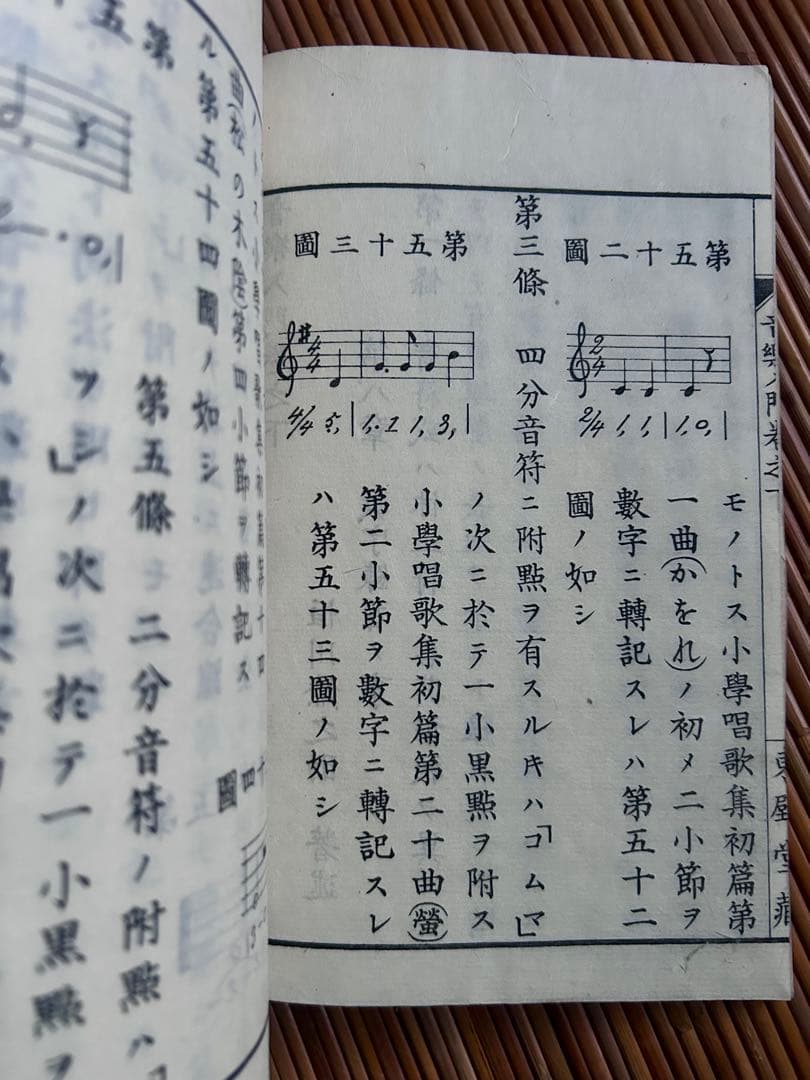 音樂入門卷之一
東屋堂藏
モノトス小學唱歌集初篇第
一曲(かをれ)ノ初メ二小節ヲ
數字ニ轉記スレハ第五十二
圖ノ如シ
第五十二圖
2/4 1, 1, | 1, 0, |
第三條 四分音符ニ附點ヲ有スルキハ「コムマ」
ノ次ニ於テ一小黑點ヲ附ス
小學唱歌集初篇第二十曲(螢)
第二小節ヲ數字ニ轉記スレ
ハ第五十三圖ノ如シ
第五十三圖
4/4 5, | 1.. 1 1, 3, |
曲(松の木陰)第四小節ヲ轉記ス
ル第五十四圖ノ如シ
第五
十四圖
第五條 二分音符ノ附點ハ
ノ次ニ於テ一小黑點ヲ